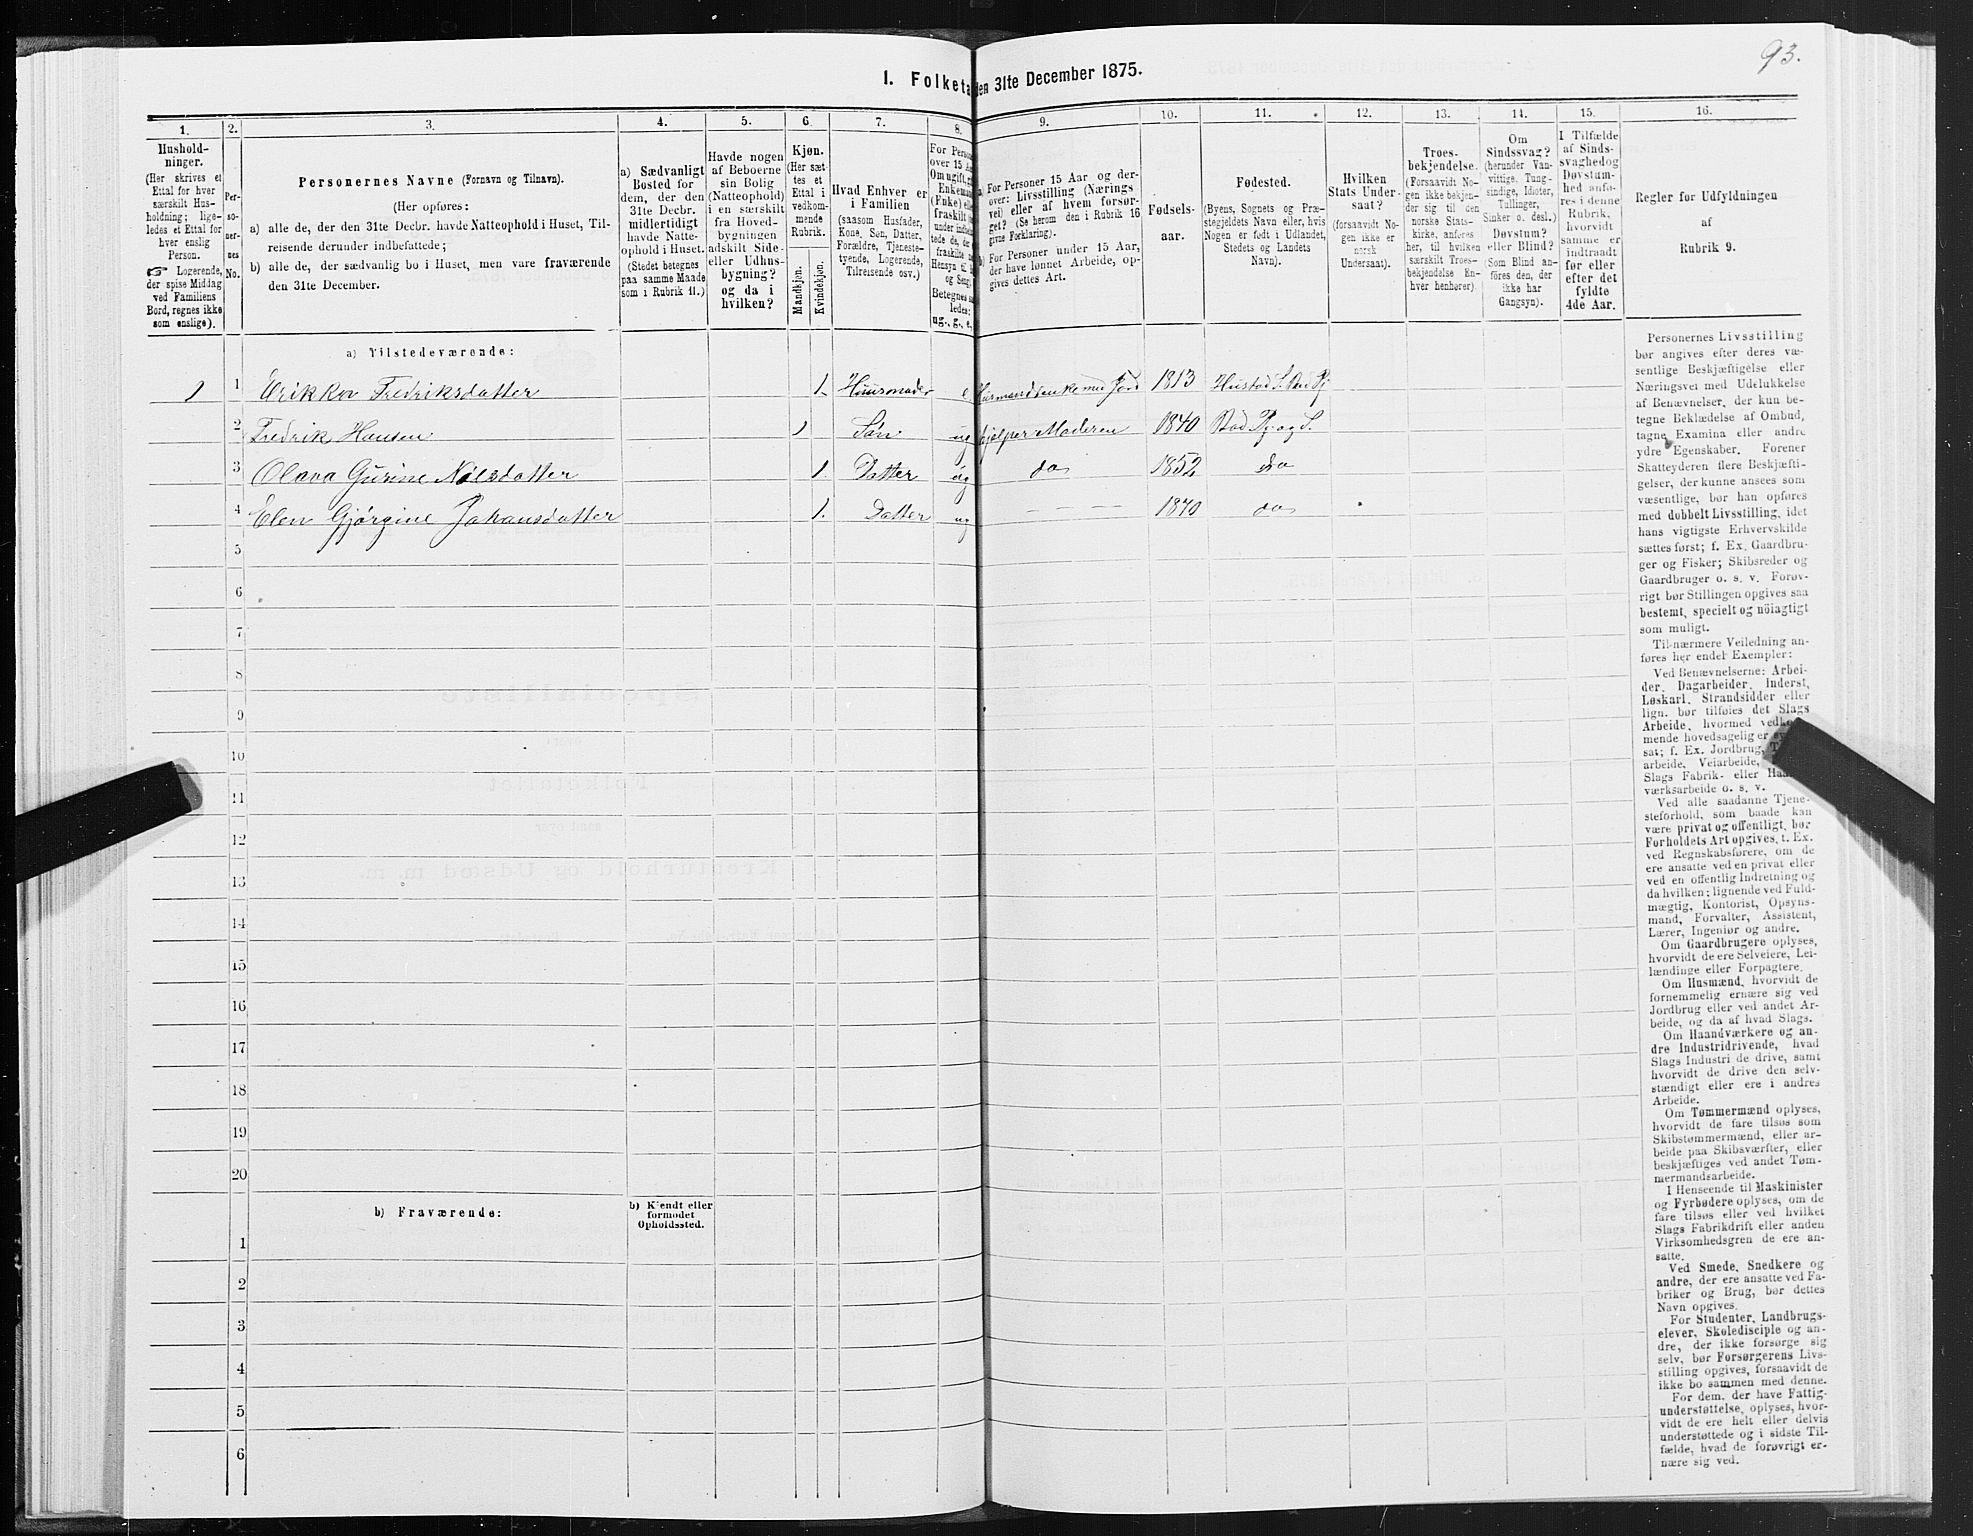 93.
I. Folketa
den 31te December 1875.
1.
2.
3.
4.
5.
6.
7.
8.
9.
10.
11.
12.
13.
14.
15.
16.
Hushold-
ninger.
(Her skrives et
Ettal for hver
særskilt Hus-
holdning; lige-
ledes et Ettal for
hver enslig
Person.
☞ Logerende,
der spise Middag
ved Familiens
Bord, regnes ikke
som enslige).
Per-
so-
ner-
nes
No.
Personernes Navne (Fornavn og Tilnavn).
(Her opføres:
a) alle de, der den 31te Decbr. havde Natteophold i Huset, Til-
reisende derunder indbefattede;
b) alle de, der sædvanlig bo i Huset, men vare fraværende
den 31te December.
a) Sædvanligt
Bosted for
dem, der den
31te Decbr.
midlertidigt
havde Natte-
ophold i Huset.
(Stedet betegnes
paa samme Maade
som i Rubrik 11.)
Havde nogen
af Beboerne
sin Bolig
(Natteophold)
i en særskilt
fra Hoved-
bygningen
adskilt Side-
eller Udhus-
bygning?
og da i
hvilken?
Kjøn.
(Her sæt-
tes et
Ettal i
vedkom-
mende
Rubrik.
Mandkjøn.
Kvindekjøn.
Hvad Enhver er
i Familien
(saasom Husfader,
Kone, Søn, Datter,
Forældre, Tjeneste-
tyende, Logerende,
Tilreisende osv.)
For Perso
over 15 Aa
Om ugift, g
Enkema
(Fnke) el
fraskilt
under
tede de, de
fraskilte
Hensyn til
og Seng.
Betegnes sa
ledes:
ug., g., e.,
a) For Personer 15 Aar og der-
over: Livsstilling (Nærings
vei) eller af hvem forsør-
get? (Se herom den i Rubrik 16
givne Forklaring).
b) For Personer under 15 Aar,
der have lønnet Arbeide, op-
gives dettes Art.
Fødsels-
aar.
Fødested.
(Byens, Sognets og Præ-
stegjeldets Navn eller, hvis
Nogen er født i Udlandet,
Stedets og Landets
Navn).
Hvilken
Stats Under-
saat?
(forsaavidt No-
gen ikke er
norsk
Undersaat).
Troes-
bekjendelse.
(Forsaavidt No-
gen ikke bekjen-
der sig til den
norske Stats-
kirke, anføres
her, til hvilken
særskilt Troes-
bekjendelse En-
hver henhører).
Om
Sindssvag?
(herunder Van-
vittige, Tung-
sindige, Idioter,
Tullinger,
Sinker o. desl.)
Døvstum?
eller Blind?
(Som Blind an-
føres den, der
ikke har
Gangsyn).
I Tilfælde
af Sinds-
svaghed og
Døvstum-
hed anfø-
res i denne
Rubrik,
hvorvidt
samme er
indtraadt
før eller
efter det
fyldte
4de Aar.
Regler for Udfyldningen
af
Rubrik 9.
a) Tilstedeværende:
1 1 Erikka Fredriksdatter 1. Huusmoder e Husmandsenke med Jord 1813 Hustad S. Bod Pj
2 Fredrik Hansen 1 Søn ug hjelper Moderen 1840 Bod Pj. og S.
3 Olava Gurine Nilsdatter 1. Datter ug do 1852 do
4 Elen Gjørgine Johansdatter 1. Datter ug — — — 1870 do
5
6
7
8
9
10
11
12
13
14
15
16
17
18
19
20
b) Fraværende:
b) Kjendt eller
formodet
Opholdssted.
1
2
3
4
5
6
Personernes Livsstilling
bør angives efter deres væ-
sentlige Beskjæftigelse eller
Næringsvei med Udelukkelse
af Benævnelser, der kun be-
tegne Beklædelse af Ombud,
tagne Examina eller andre
ydre Egenskaber. Forener
Skatteyderen flere Beskjæfti-
gelser, der kunne ansees som
væsentlige, bør han opføres
med dobbelt Livsstilling, idet
hans vigtigste Erhvervskilde
sættes først; f. Ex. Gaardbru-
ger og Fisker; Skibsreder og
Gaardbruger o. s. v. Forøv-
rigt bør Stillingen opgives saa
bestemt, specielt og nöiagtigt
som muligt.
Til nærmere Veiledning an-
føres her endel Exempler:
Ved Benævnelserne: Arbei-
der, Dagarbeider, Inderst,
Løskarl, Strandsidder eller
lign. bør tilføies det Slags
Arbeide, hvormed vedko-
mende hovedsagelig er sy
sat; f. Ex. Jordbrug, T
arbeide, Veiarbeide,
Slags Fabrik- eller Haa
værksarbeide o. s. v.
Ved alle saadanne Tjene-
steforhold, som baade kan
være privat og offentligt, bør
Forholdets Art opgives, t. Ex.
ved Regnskabsførere, om de
ere ansatte ved en privat eller
ved en offentlig Indretning og
da hvilken; lignende ved Fuld-
mægtig, Kontorist, Opsyns-
mand, Forvalter, Assistent,
Lærer, Ingeniør og andre.
Om Gaardbrugere oplyses,
hvorvidt de ere Selveiere, Lei-
lændinge eller Forpagtere.
Om Husmænd, hvorvidt de
fornemmelig ernære sig ved
Jordbrug eller ved andet Ar-
beide, og da af hvad Slags.
Om Haandværkere og an-
dre Industridrivende, hvad
Slags Industri de drive, samt
hvorvidt de drive den selv-
stændigt eller ere i andres
Arbeide.
Om Tømmermænd oplyses,
hvorvidt de fare tilsøs som
Skibstømmermænd, eller ar-
beide paa Skibsværfter, eller
beskjæftiges ved andet Tøm-
mermandsarbeide.
I Henseende til Maskinister
og Fyrbødere oplyses, om de
fare tilsøs eller ved hvilket
Slags Fabrikdrift eller anden
Virksomhedsgren de ere an-
satte.
Ved Smede, Snedkere og
andre, der ere ansatte ved Fa-
briker og Brug, bør dettes
Navn opgives.
For Studenter, Landbrugs-
elever, Skoledisciple og an-
dre, der ikke forsørge sig
selv, bør Forsørgerens Livs-
stilling opgives, forsaavidt de
ikke bo sammen med denne.
For dem, der have Fattig-
understøttelse, oplyses, hvor-
vidt de ere helt eller delvis
understøttede og i sidste Til-
fælde, hvad de forøvrigt er-
nære sig ved.